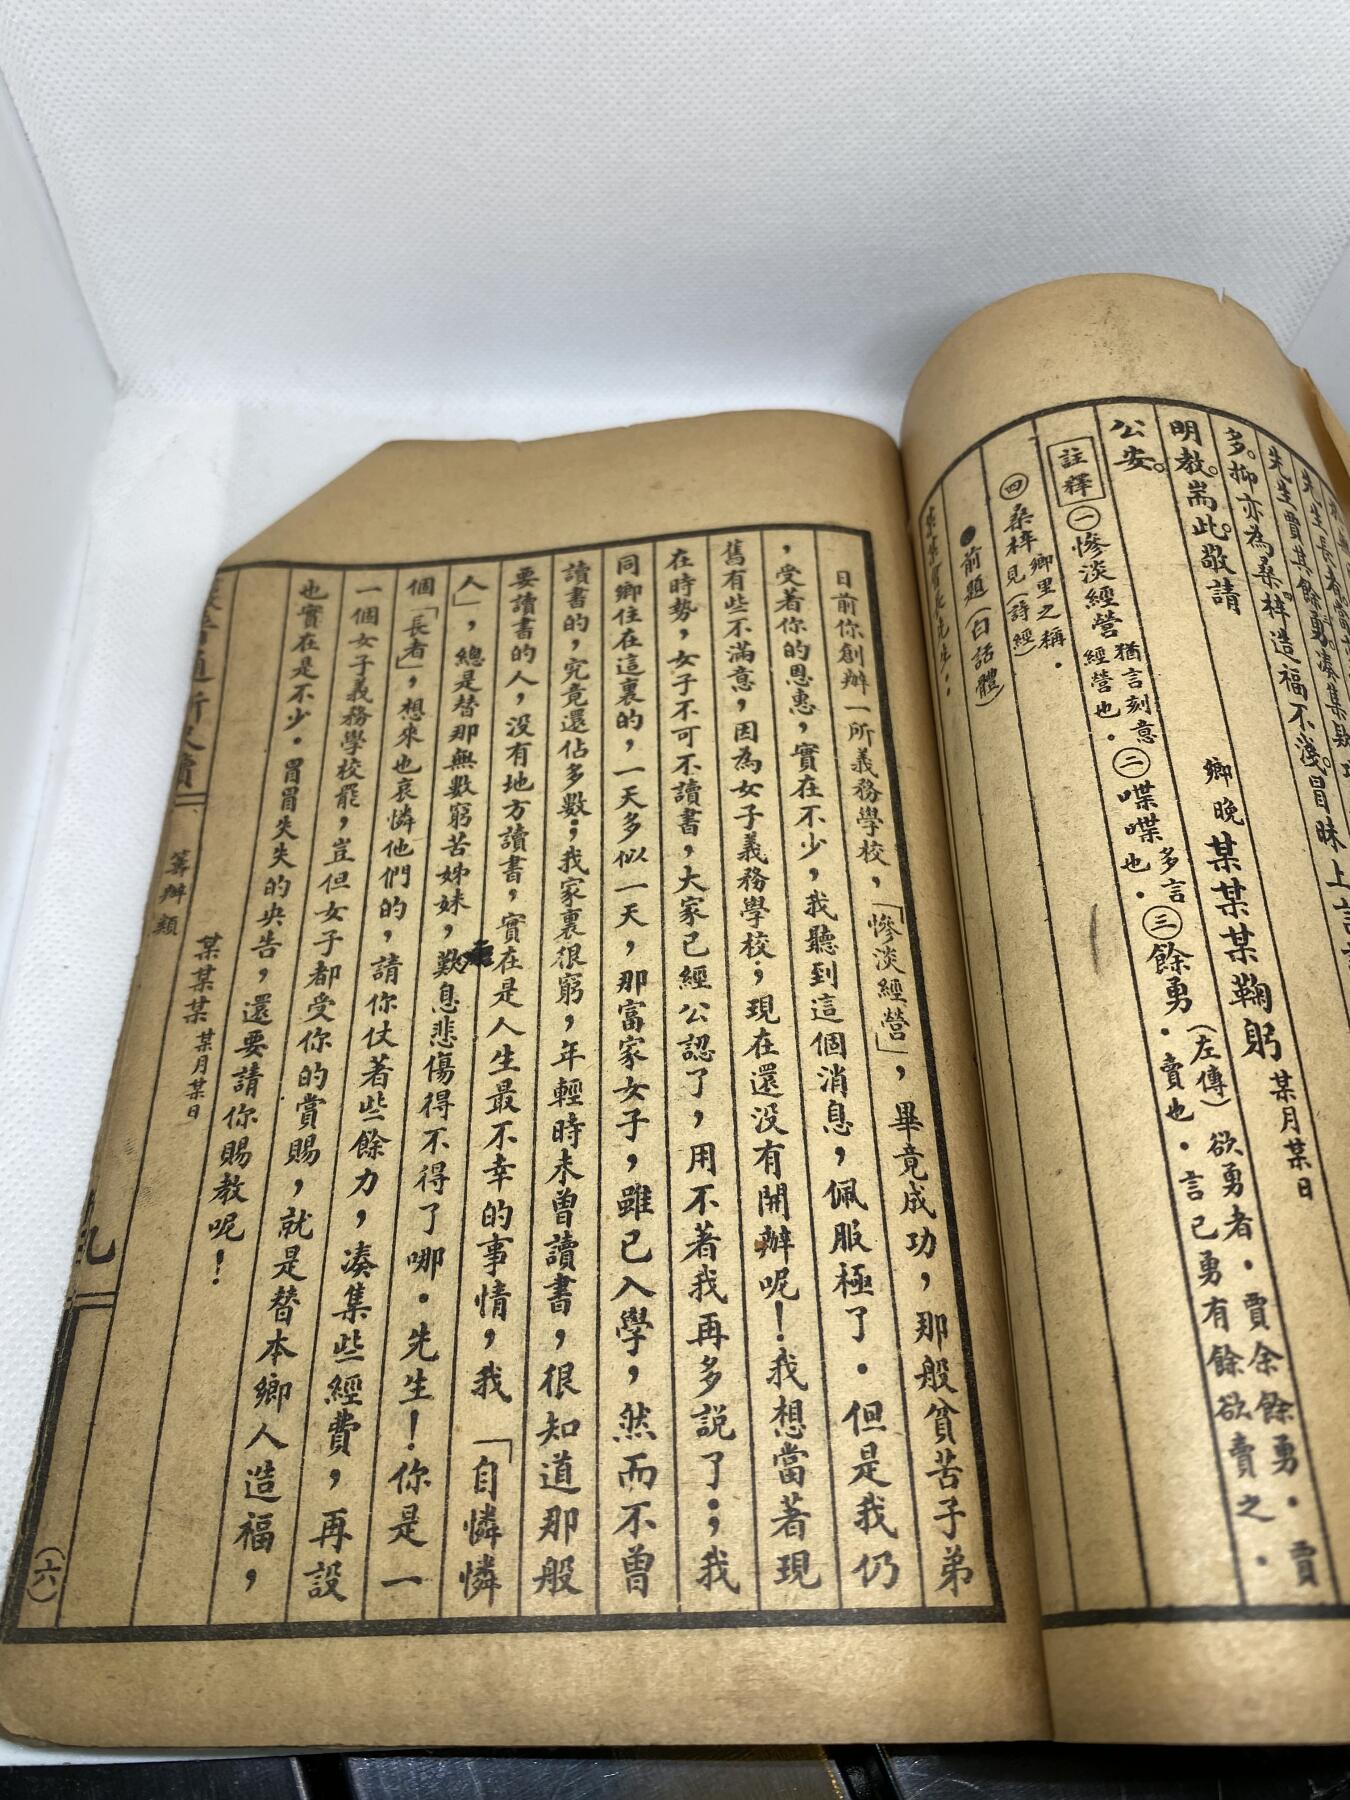 先生賈其餘勇。湊集
多。抑亦為桑梓造福不淺。冒昧上
明教。耑此。敬請
公安。
鄉晚某某某鞠躬 某月某日
註釋
㊀慘淡經營 猶言刻意經營也．㊁喋喋 多言也．㊂餘勇．(左傳)欲勇者．賈余餘勇．賈
賣也．言己勇有餘欲賣之．
㊃桑梓 鄉里之稱．見(詩經)
●前題(白話體)
先生：
日前你創辦一所義務學校，「慘淡經營」，畢竟成功，那般貧苦子弟
，受著你的恩惠，實在不少，我聽到這個消息，佩服極了．但是我仍
舊有些不滿意，因為女子義務學校；現在還沒有開辦呢！我想當著現
在時勢，女子不可不讀書，大家已經公認了，用不著我再多説了；我
同鄉住在這裏的，一天多似一天，那富家女子，雖已入學，然而不曾
讀書的，究竟還佔多數；我家裏很窮，年輕時未曾讀書，很知道那般
要讀書的人，沒有地方讀書，實在是人生最不幸的事情，我「自憐憐
人」，總是替那無數窮苦姊妹，歎息悲傷得不得了哪．先生！你是一
個「長者」，想來也哀憐他們的，請你仗著些餘力，湊集些經費，再設
一個女子義務學校罷，豈但女子都受你的賞賜，就是替本鄉人造福，
也實在是不少．冒冒失失的央告，還要請你賜教呢！
某某某 某月某日
普通新尺牘二
籌辦類
(六)